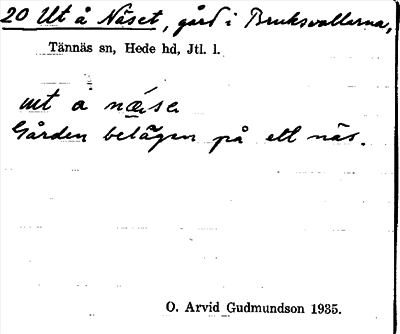 20 Ut å Näset, gård i Bruksvallarna,
Tännäs sn, Hede hd, Jtl. l.
ut å næ̀se
Gården belägen på ett näs.
O. Arvid Gudmundson 1935.